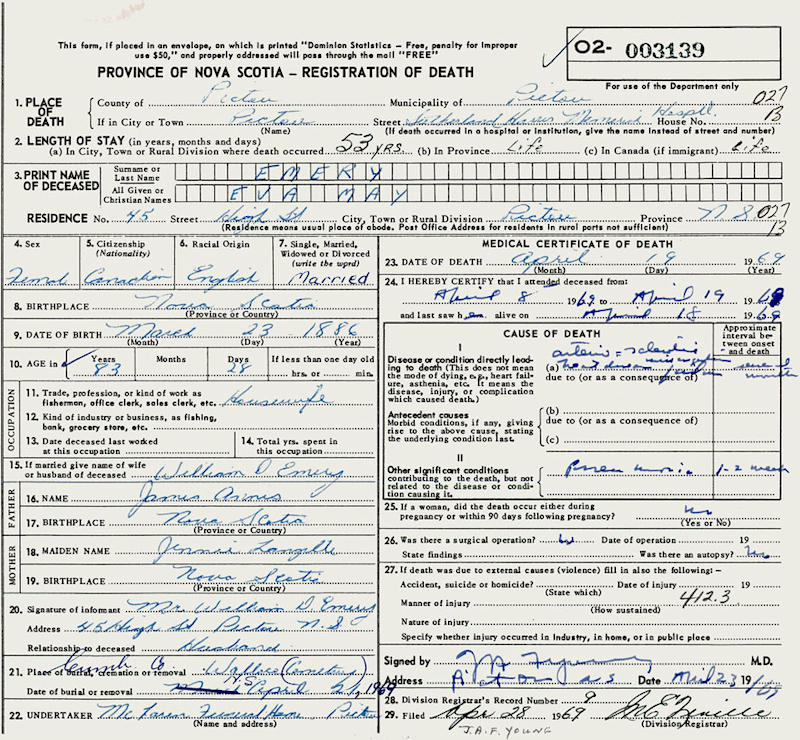 This form, if placed in an envelope, on which is printed "Dominion Statistics – Free, penalty for improper
use $50," and properly addressed will pass through the mail "FREE"
02- 003139
PROVINCE OF NOVA SCOTIA – REGISTRATION OF DEATH
For use of the Department only
1. PLACE OF DEATH
County of Pictou Municipality of Pictou 027
If in City or Town Pictou Street Sutherland Harris Memorial Hosptl. House No. 13
(Name) (If death occurred in a hospital or institution, give the name instead of street and number)
2. LENGTH OF STAY (in years, months and days)
(a) In City, Town or Rural Division where death occurred 53 yrs (b) In Province Life (c) In Canada (if immigrant) Life
3. PRINT NAME OF DECEASED
Surname or Last Name EMERY
All Given or Christian Names EVA MAY
RESIDENCE No. 45 Street High St City, Town or Rural Division Pictou Province N S 027
13
(Residence means usual place of abode. Post Office Address for residents in rural parts not sufficient)
4. Sex
5. Citizenship (Nationality) Canadian
6. Racial Origin English
7. Single, Married, Widowed or Divorced (write the word) Married
8. BIRTHPLACE Nova Scotia
(Province or Country)
9. DATE OF BIRTH March 23 1886
(Month) (Day) (Year)
10. AGE in Years 83 Months Days 28 If less than one day old hrs. or min.
OCCUPATION
11. Trade, profession, or kind of work as fisherman, office clerk, sales clerk, etc. Housewife
12. Kind of industry or business, as fishing, bank, grocery store, etc.
13. Date deceased last worked at this occupation
14. Total yrs. spent in this occupation
15. If married give name of wife or husband of deceased William D. Emery
FATHER
16. NAME James
17. BIRTHPLACE Nova Scotia
(Province or Country)
MOTHER
18. MAIDEN NAME Jennie Langille
19. BIRTHPLACE Nova Scotia
(Province or Country)
20. Signature of informant Mr William D. Emery
Address 45 High St Pictou N. S.
Relationship to deceased Husband
21. Place of burial, cremation or removal Cumb Co Wallace (Cemetery) N.S
Date of burial or removal April 21, 1969
22. UNDERTAKER Funeral Home Pictou
(Name and address)
MEDICAL CERTIFICATE OF DEATH
23. DATE OF DEATH April 19 1969
(Month) (Day) (Year)
24. I HEREBY CERTIFY that I attended deceased from:
April 8 1969 to April 19 1969
and last saw her alive on April 18 1969
CAUSE OF DEATH
Approximate interval between onset and death
I
Disease or condition directly leading to death (This does not mean the mode of dying, e.g., heart failure, asthenia, etc. It means the disease, injury, or complication which caused death.)
(a) arterio-sclerotic heart disease
due to (or as a consequence of)
Antecedent causes
Morbid conditions, if any, giving rise to the above cause, stating the underlying condition last.
(b)
due to (or as a consequence of)
(c)
II
Other significant conditions contributing to the death, but not related to the disease or condition causing it.
1-2 week
25. If a woman, did the death occur either during pregnancy or within 90 days following pregnancy? no
(Yes or No)
26. Was there a surgical operation? no Date of operation 19
State findings Was there an autopsy? no
27. If death was due to external causes (violence) fill in also the following:–
Accident, suicide or homicide? Date of injury 19
(State which)
412.3
Manner of injury
(How sustained)
Nature of injury
Specify whether injury occurred in Industry, in home, or in public place
Signed by M.D.
Address Date April 23 19/69
28. Division Registrar's Record Number 9
29. Filed Apr 28 1969
(Division Registrar)
J.A.F. YOUNG